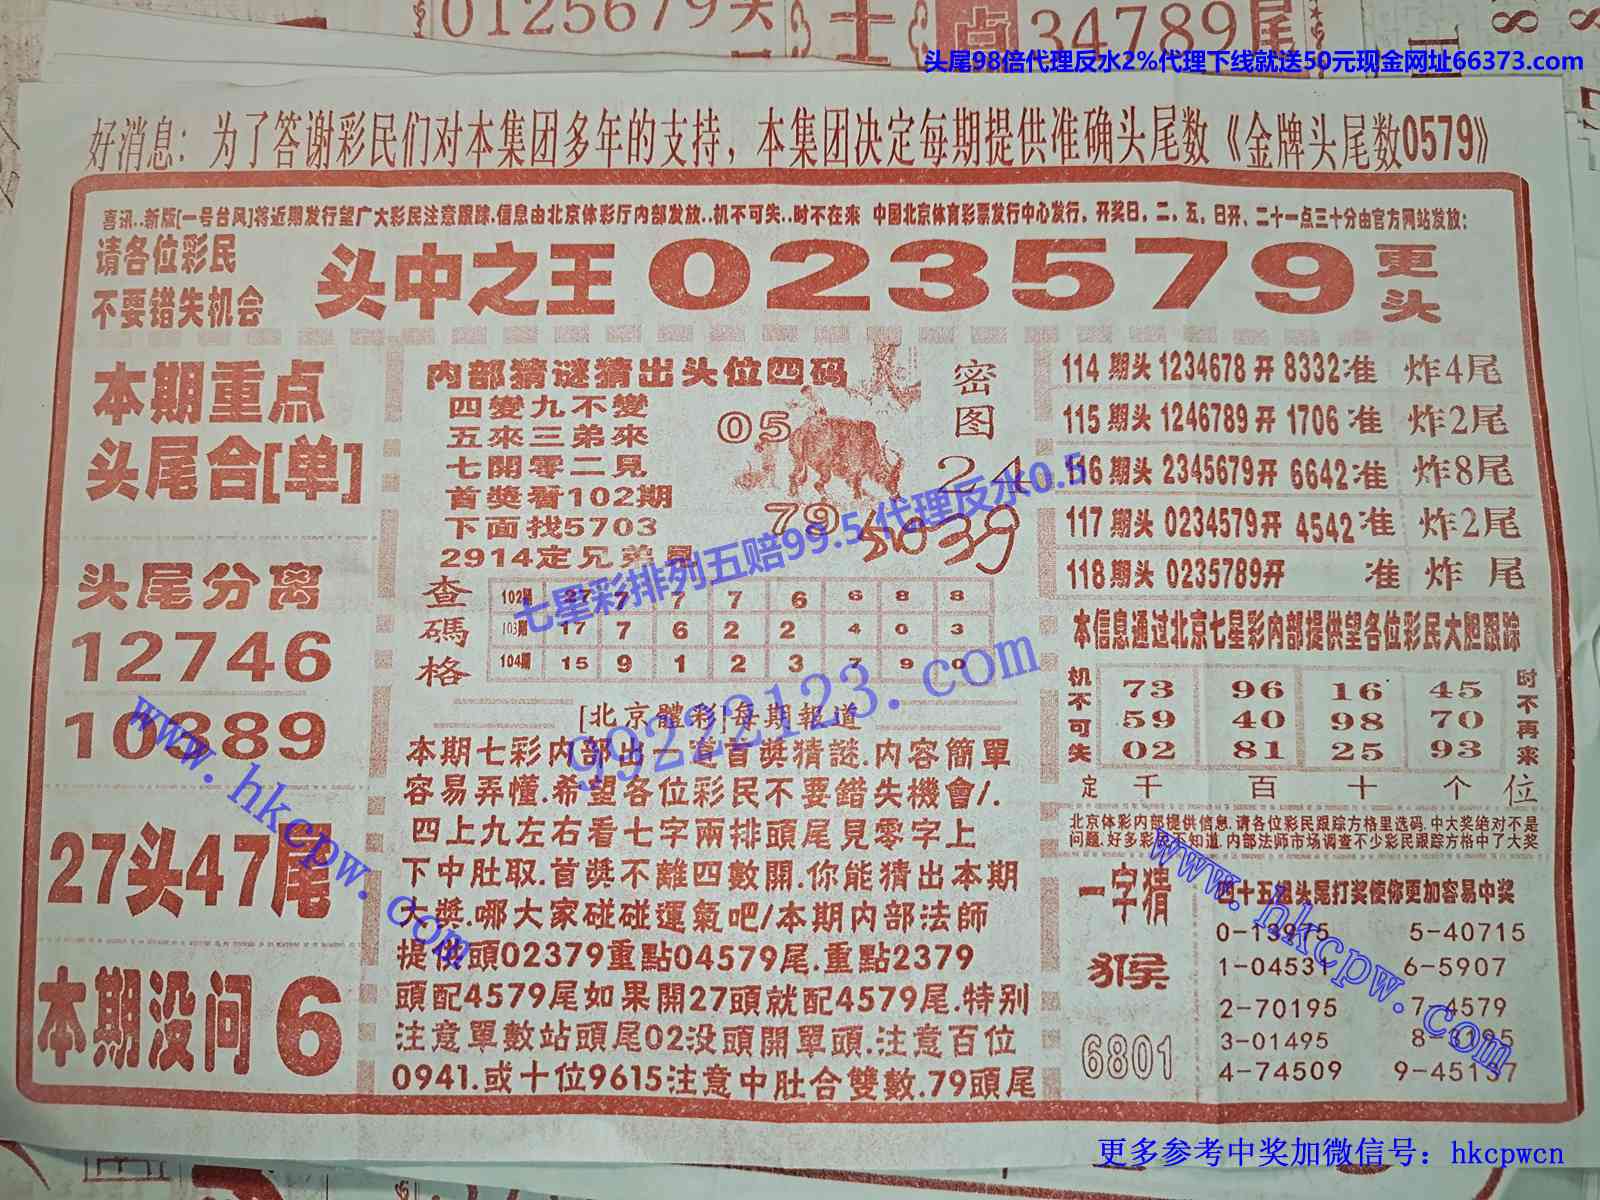 0125679头
34789尾
头尾98倍代理反水2%代理下线就送50元现金网址66373.com
好消息：为了答谢彩民们对本集团多年的支持，本集团决定每期提供准确头尾数《金牌头尾数0579》
喜讯..新版[一号台风]将近期发行望广大彩民注意跟踪.信息由北京体彩厅内部发放..机不可失..时不在来 中国北京体育彩票发行中心发行，开奖日，二，五，日开、二十一点三十分由官方网站发放：
请各位彩民
不要错失机会
头中之王023579更头
本期重点
头尾合[单]
头尾分离
12746
10889
27头47尾
本期没问6
内部猜谜猜出头位四码
四變九不變
五來三弟來
七開零二見
首獎看102期
下面找5703
2914定兄弟見
密图
05
24
79
5039
查碼格
102期 27 7 7 7 6 6 8 8
103期 17 7 6 2 2 4 0 3
104期 15 9 1 2 3 7 9 0
[北京體彩]每期報道
本期七彩内部出一道首獎猜謎.内容簡單
容易弄懂.希望各位彩民不要錯失機會/.
四上九左右看七字兩排頭尾見零字上
下中肚取.首獎不離四數開.你能猜出本期
大獎.哪大家碰碰運氣吧/本期内部法師
提供頭02379重點04579尾.重點2379
頭配4579尾如果開27頭就配4579尾.特别
注意單數站頭尾02没頭開單頭.注意百位
0941.或十位9615注意中肚合雙數.79頭尾
114期头1234678开8332准 炸4尾
115期头1246789开1706准 炸2尾
116期头2345679开6642准 炸8尾
117期头0234579开4542准 炸2尾
118期头0235789开 准 炸 尾
本信息通过北京七星彩内部提供望各位彩民大胆跟踪
机不可失
73 96 16 45
59 40 98 70
02 81 25 93
时不再来
定 千 百 十 个 位
北京体彩内部提供信息.请各位彩民跟踪方格里选码.中大奖绝对不是
问题.好多彩民不知道.内部法师市场调查不少彩民跟踪方格中了大奖
一字猜
猴
6801
四十五组头尾打奖使你更加容易中奖
0-13975 5-40715
1-04531 6-5907
2-70195 7-4579
3-01495
4-74509 9-45137
七星彩排列五赔99.5 代理反水0.5
99222123.com
www.hkcpw.com
www.hkcpw.com
更多参考中奖加微信号：hkcpwcn